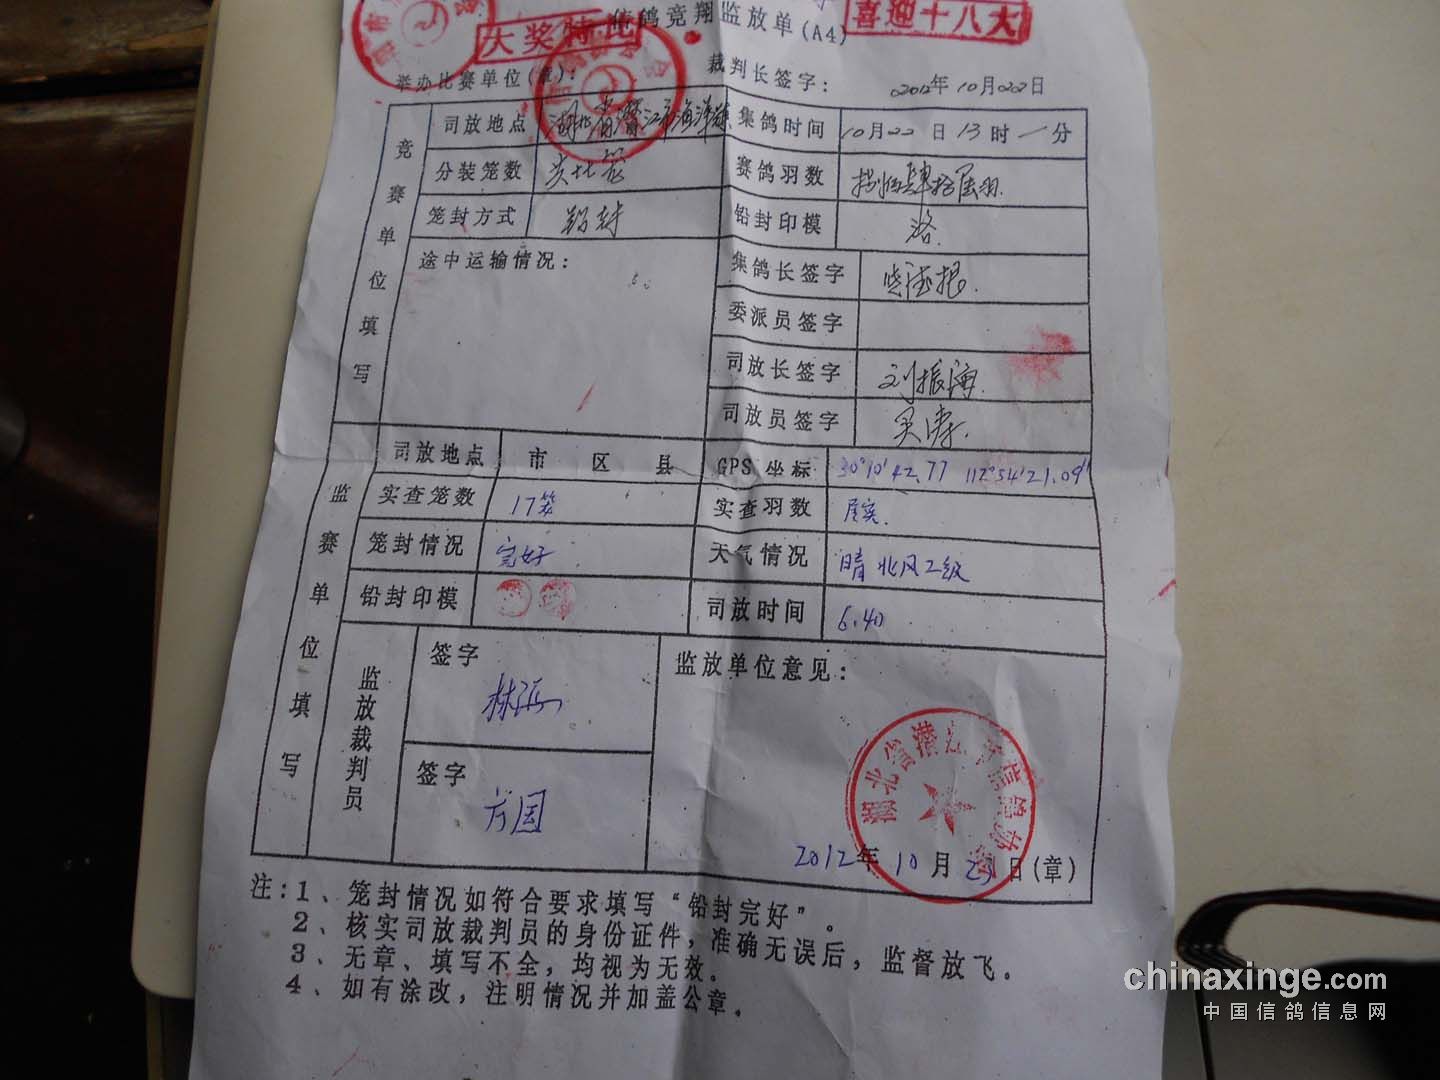 大奖特比
信鸽竞翔监放单(A4)
喜迎十八大
举办比赛单位(章):
裁判长签字:
2012年10月22日
竞赛单位填写
司放地点
集鸽时间 10月22日13时一分
分装笼数
赛鸽羽数
笼封方式 铅封
铅封印模 洛
途中运输情况:
集鸽长签字
委派员签字
司放长签字 刘振海
司放员签字 吴涛
监赛单位填写
司放地点 市 区 县
GPS 坐标 30°10'42.77 112°54'21.09"
实查笼数 17笼
实查羽数 属实
笼封情况 完好
天气情况 晴 北风二级
铅封印模
司放时间 6.40
监放裁判员
签字
签字 方国
监放单位意见:
湖北省潜江市信鸽协会
2012年10月23日(章)
注:1、笼封情况如符合要求填写“铅封完好”。
2、核实司放裁判员的身份证件,准确无误后,监督放飞.
3、无章、填写不全,均视为无效.
4、如有涂改,注明情况并加盖公章.
chinaxinge.com
中国信鸽信息网